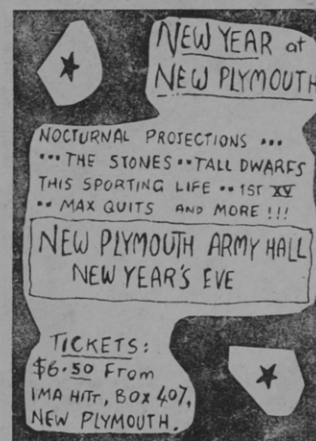 NEW YEAR at
NEW PLYMOUTH
NOCTURNAL PROJECTIONS •••
••• THE STONES •• TALL DWARFS
THIS SPORTING LIFE •• 1ST XV
•• MAX QUITS AND MORE !!!
NEW PLYMOUTH ARMY HALL
NEW YEAR'S EVE
TICKETS:
$6.50 From
IMA HITT, BOX 407,
NEW PLYMOUTH.